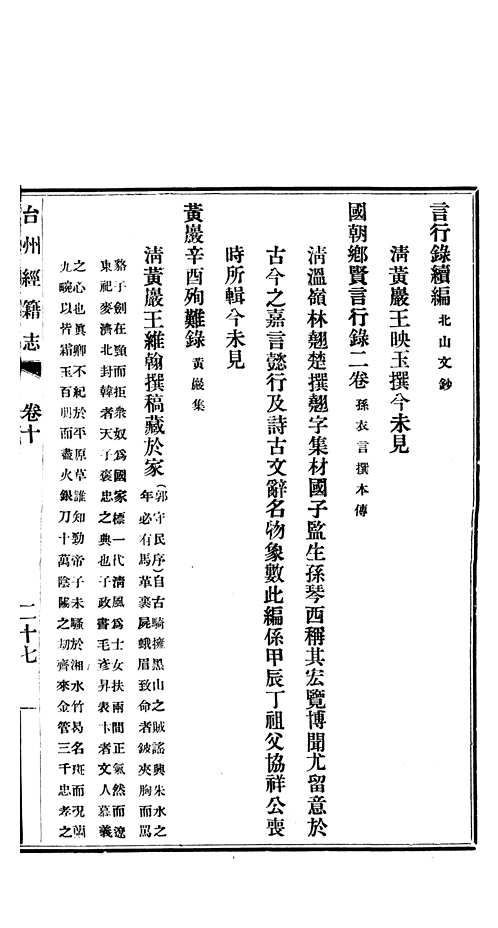 言行錄續編 北山文鈔
清黃巖王映玉撰今未見
國朝鄉賢言行錄二卷 孫衣言撰本傳
清溫嶺林翹楚撰翹字集材國子監生孫琴西稱其宏覽博聞尤留意於
古今之嘉言懿行及詩古文辭名物象數此編係甲辰丁祖父協祥公喪
時所輯今未見
黃巖辛酉殉難錄 黃巖集
清黃巖王維翰撰稿藏於家
(郭守民序)自古騎擁黑山之賊謠興朱水之
年必有馬革裹屍蛾眉致命者鈹夾胸而罵
駱子劍在頸而拒衆奴爲國家標一代清風爲士女扶兩間正氣然而遼
東祀麥濟北封韓者天子褒忠之典也子政書毛彥昇表卞者文人慕義
之心也眞卿不紀於平原草誰知勁帝子未騷於湘水竹曷名斑而況
九畹以皆霜玉百朋而盡火銀刀十萬陰陽之刼齊來金管三千忠孝之
台州經籍志 卷十 二十七